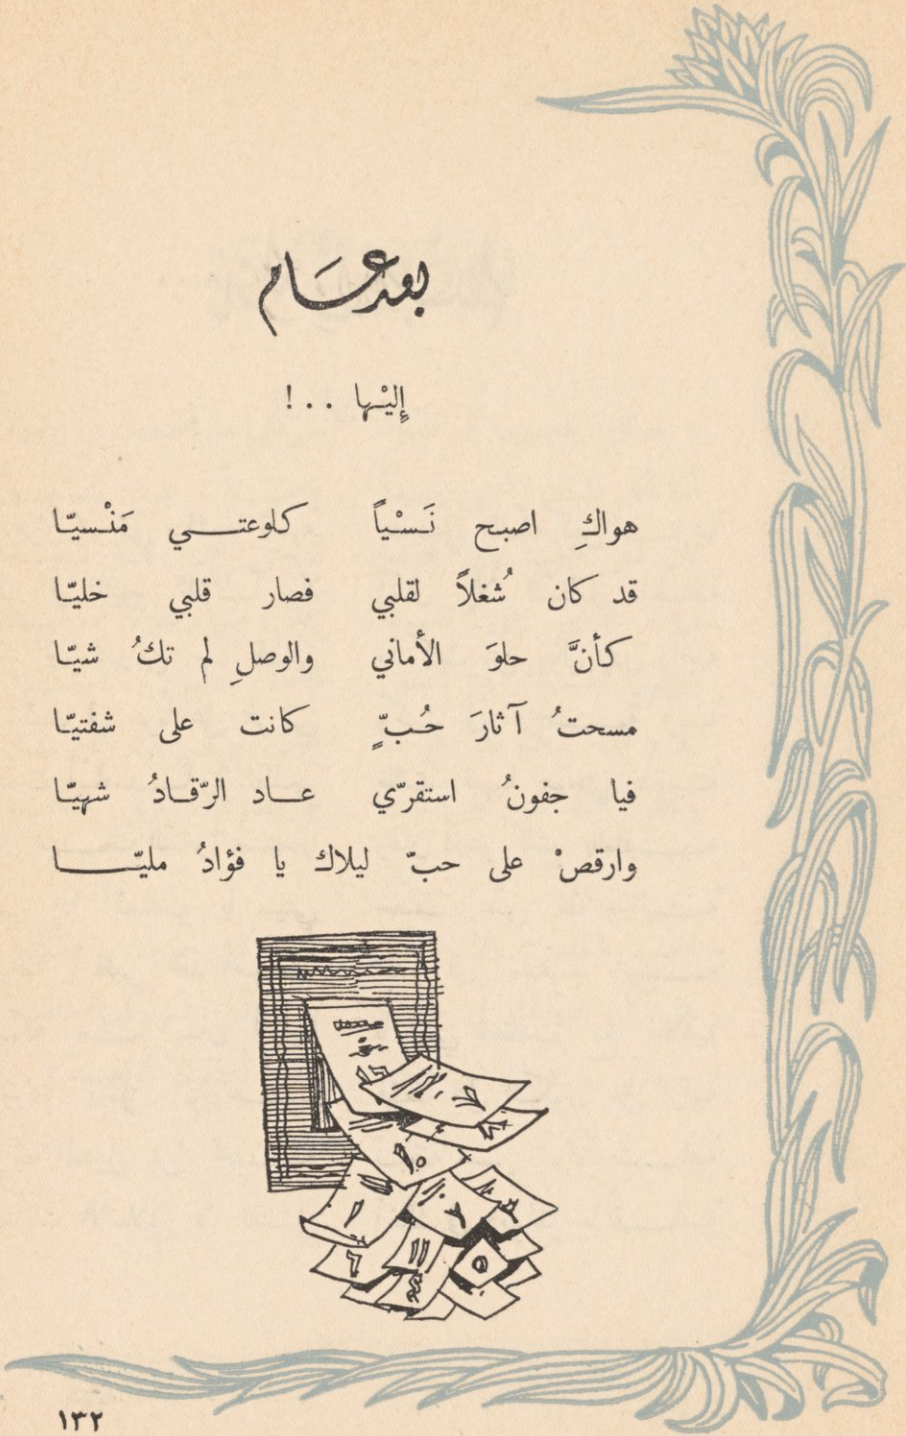 بعد عام
إِليْها ..!
هواكِ اصبح نَسْياً كلوعتي مَنْسيّا
قد كان ُشغلاً لقلبي فصار قلبي خليّا
كأنَّ حلوَ الأماني والوصلِ لم تكُ شيّا
مسحتُ آثارَ حُبٍّ كانت على شفتيّا
فيا جفونُ استقرّي عاد الرّقادُ شهيّا
وارقصْ على حبّ ليلاك يا فؤادُ مليّا
١٣٢